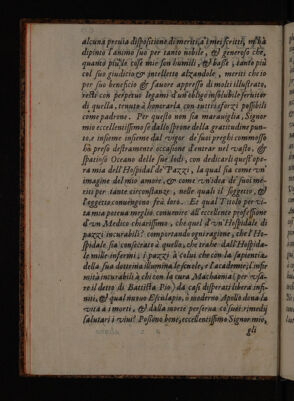 alcuna previa dispositione di meriti, a i miei scritti, m'ha
dipinto l'animo suo per tanto nobile, & generoso che,
quanto più le cose mie son humili, & basse, tanto più
col suo giudicio & intelletto alzandole, meriti che io
per suo beneficio & favore appresso di molti illustrato,
resti con perpetuo legami d'un obligo insolubile servitor
di quella, tenuto à honorarla con tutti i sforzi possibili
come padrone. Per questo non sia maraviglia, Signor
mio eccellentissimo se dallo sprone della gratitudine punto,
e insieme insieme dal vigor de suoi preghi commosso
hò preso destramente occasione d'entrar nel vasto, &
spatioso Oceano delle sue lodi, con dedicarli quest'opera
mia dell'Hospidal de' Pazzi, la qual sia come un
imagine del mio amore, & come un'idea de' suoi meriti
per tante circonstanze, nelle quali il soggetto, &
l'oggetto convengono frà loro. Et qual Titolo per vita
mia poteva meglio convenire all'eccellente professione
d'un Medico chiarissimo, che quel d'un Hospidale di
pazzi incurabili? comportando ogni ragione, che l'Hospidale
sia consecrato à quello, che trahe dall'Hospidale
mille infermi; i pazzi à colui che con la sapientia
della sua dottrina illumina le scuole, e l'academie; l'infirmità
incurabili à chi con la cura Machaonia (per usare
il detto di Battista Pio) da casi disperati libera infiniti,
& qual nuovo Esculapio, ò moderno Apollo dona la
vita à i morti, & dalla morte preserva co suoi rimedij
salutari i vivi? Posiamo bene, eccellentissimo Signor mio,
gli